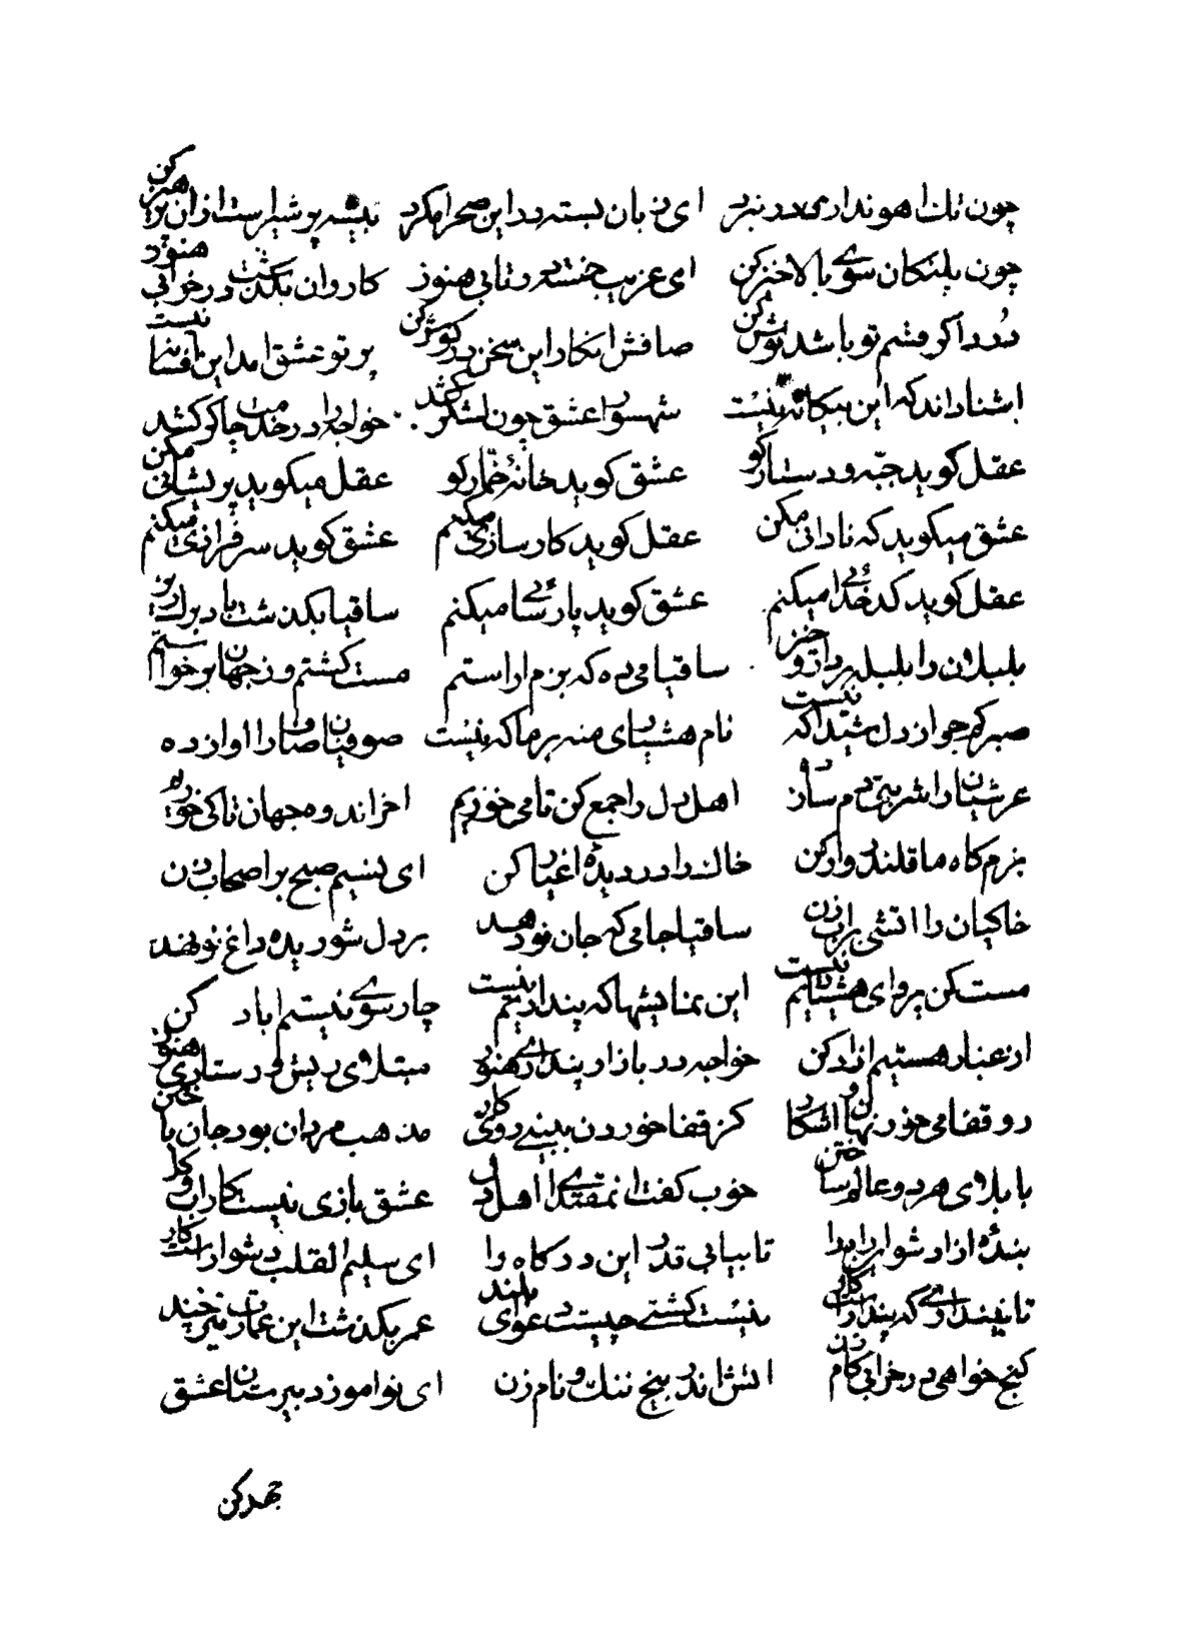 چون تك اهو نداری در نبرد ای زبان بسته در این صحرا مکرد بیشه پر شیر است از آن پرهیز کن
چون پلنکان سوی بالا خیز کن ای عزیب خسته در تابی هنوز کاروان بکذشت در خوابی هنوز
درد اکر قسم تو باشد نوش کن صافش انکار این سخن در کوش کن پرتو عشق امد این افسانه نیست
اشنا داند که این بیکانه نیست شهسوار عشق چون لشکر کشد خواجه را در خدمت چاکر کشد
عقل کوید جبّه و دستار کو عشق کوید خانهٔ خمّار کو عقل میکوید پریشانی مکن
عشق میکوید که نادانی مکن عقل کوید کارسازی میکنم عشق کوید سرفرازی میکنم
عقل کوید کدخدائی میکنم عشق کوید پارسائی میکنم ساقیا بکذشت باد
بلبلان را بلبله پرداز و خیز ساقیا می ده که بزم اراستم مست کشتم وز جهان برخواستم
صبرکم جو از دل شیدا که نیست نام هشیاری منه بر ما که نیست صوفیان صاف را اواز ده
عرشیان را شربتی دم ساز ده اهل دل را جمع کن تا می خوریم اخر اندوه جهان تا کی خوریم
بزم کاه ما قلندر وار کن خاك را در دیدهٔ اغیار کن ای نسیم صبح بر اصحاب زن
خاکیان را اتشی بر اب زن ساقیا جامی که جان نو دهد بر دل شوریده داغ نو نهد
مست کن پروای هشیاریم نیست این نمایشها که پنداریم نیست چار سوی نیستیم اباد کن
از غبار هستیم ازاد کن خواجه در بازار پنداری هنوز مبتلای ریش و دستاری هنوز
رو قفا می خور نهان و اشکار کز قفا خوردن ببینی روی کار مذهب مردان بود جان باختن
با بلای هر دو عالم ساختن خوب کفت ان مقتدای اهل دل عشق بازی نیست کار اب و کل
بندهٔ ازاد شو ابرار را تا بیابی قدر این درکاه را ای سلیم القلب دشوار است کار
تا نپنداری که پندار است کار نیست کشتی چیست دعوای بلند عمر بکذشت این عمارت چند
کنج خواهی در خرابی کام زن اتش اندر بیخ ننك و نام زن ای نو اموز دبیرستان عشق
جهد کن